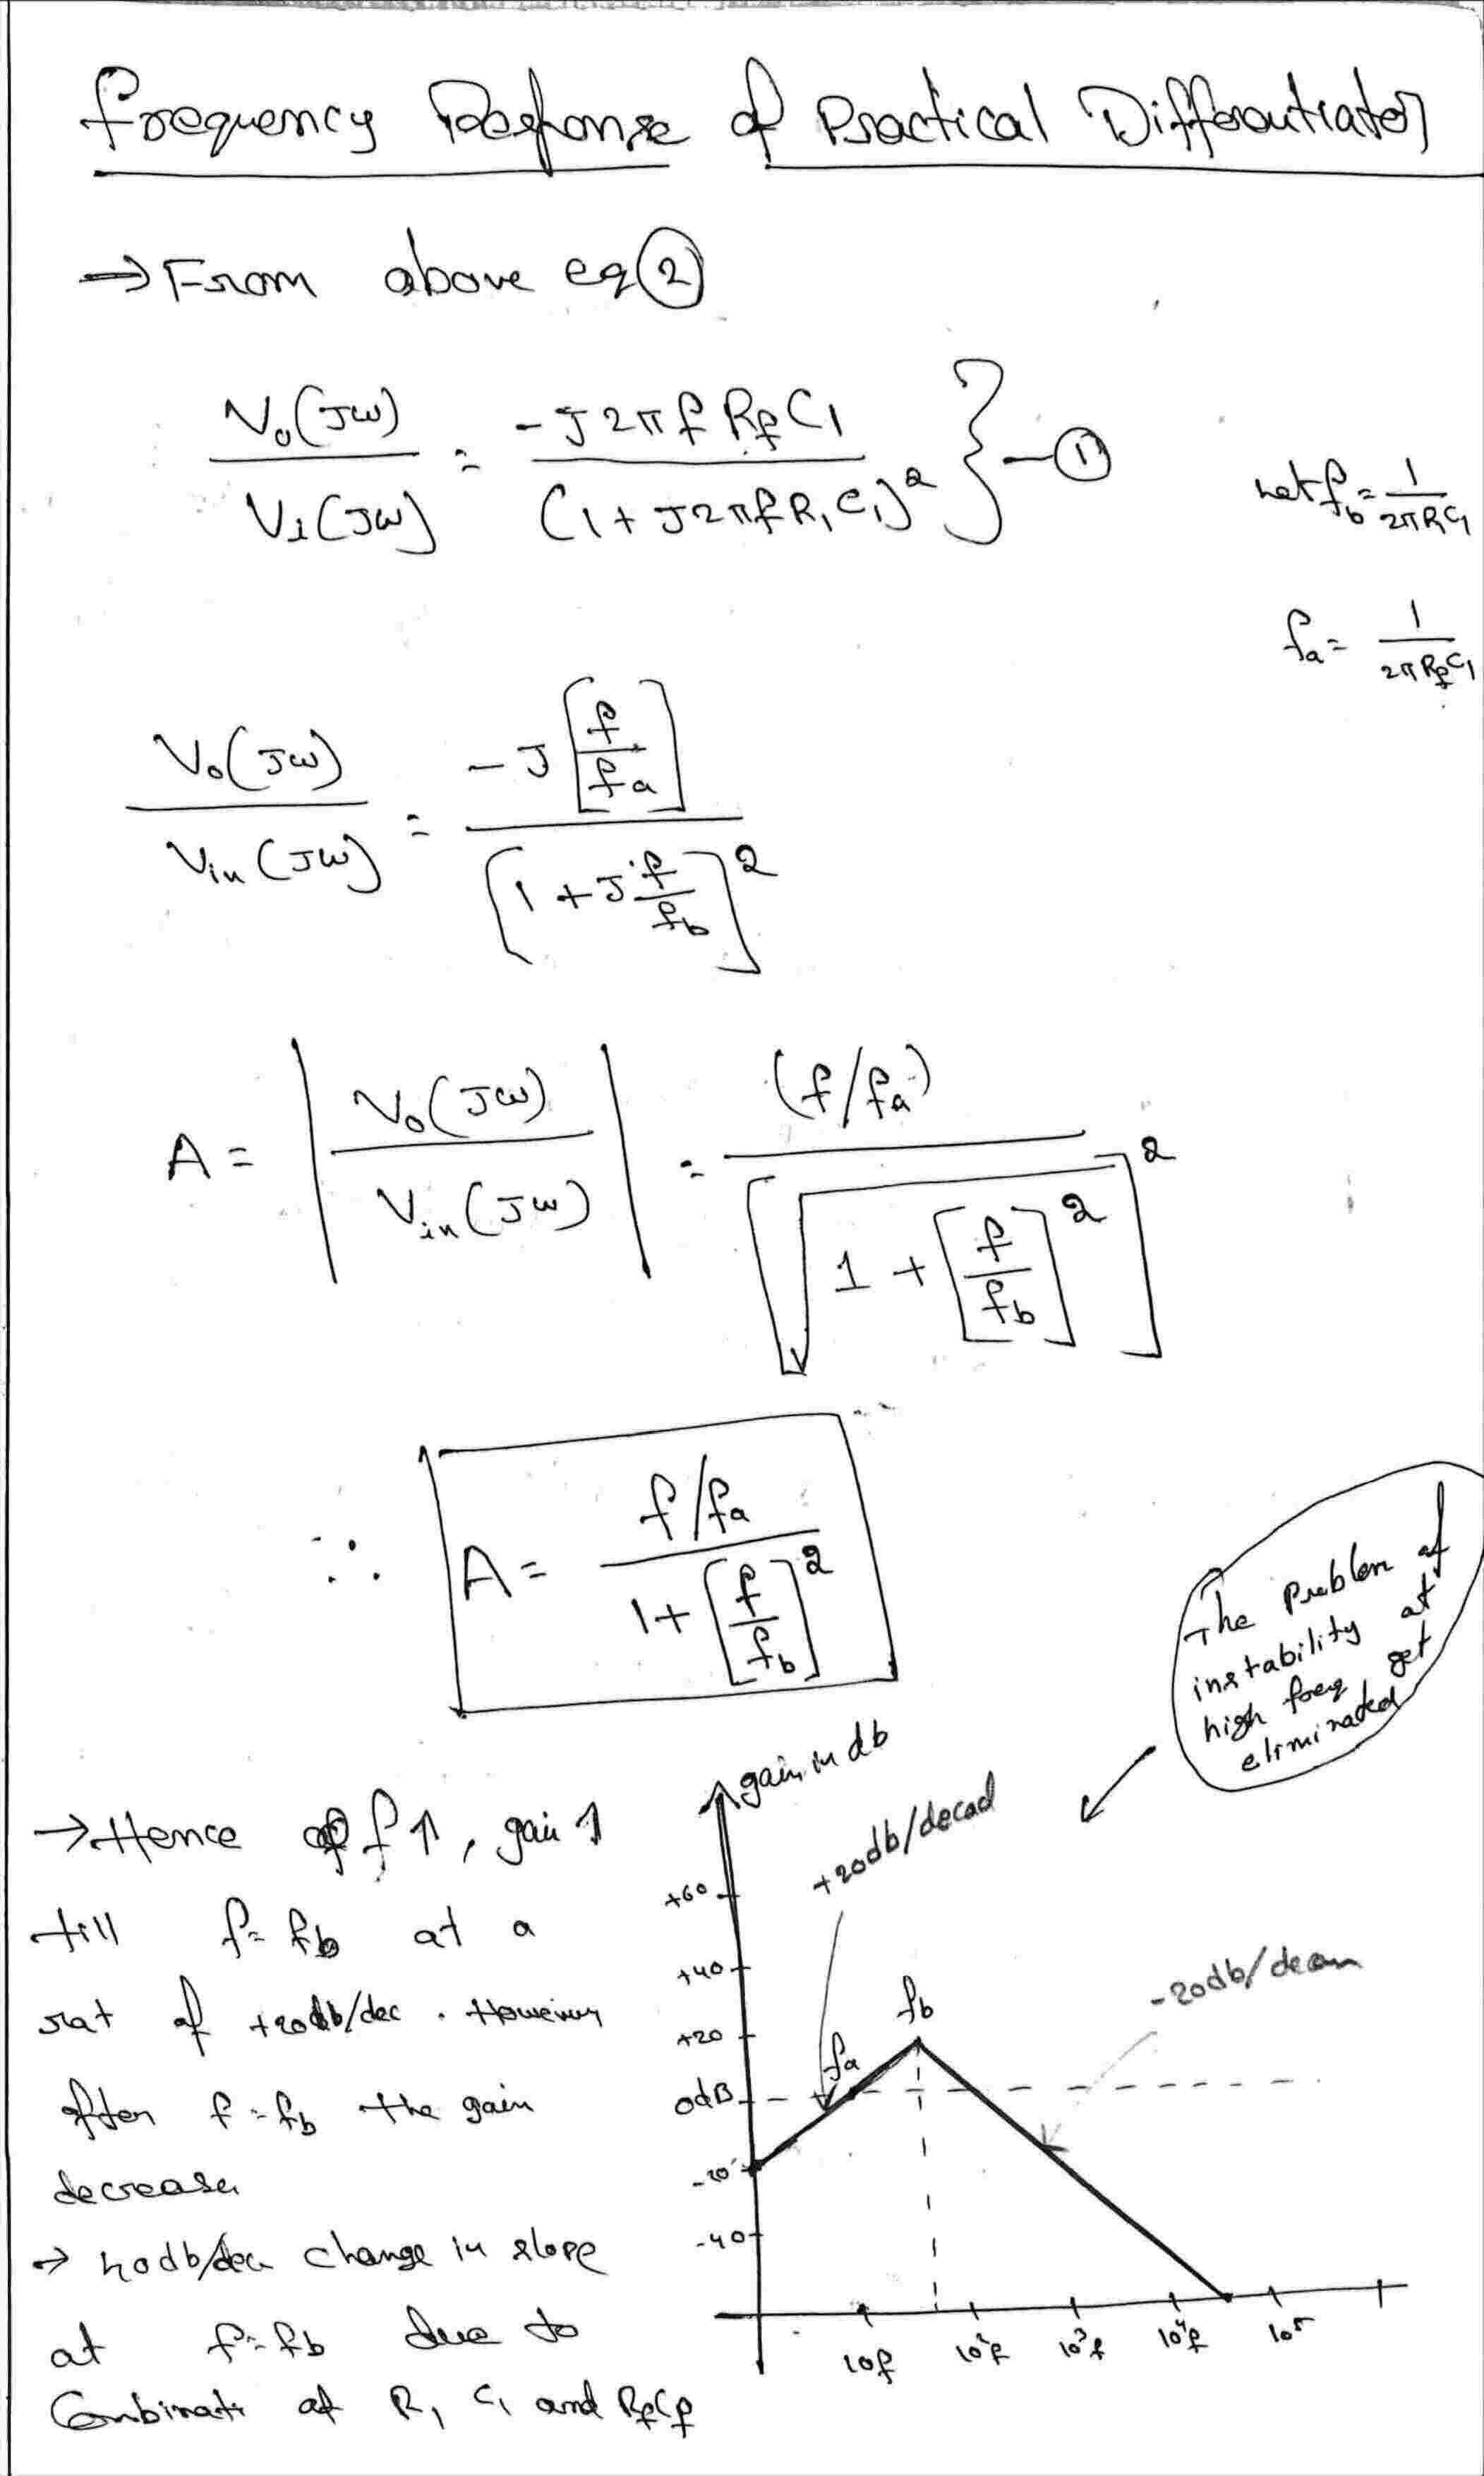 Frequency Response of Practical Differentiator
→ From above eq ②
Vo(Jω) / V1(Jω) = -J2πf RfC1 / (1 + J2πfR1C1)² } — ①
Let fb = 1 / 2πR1C1
fa = 1 / 2πRfC1
Vo(Jω) / Vin(Jω) = -J [f/fa] / [1 + J f/fb]²
A = | Vo(Jω) / Vin(Jω) | = (f/fa) / [√(1 + [f/fb]²)]²
∴ A = f/fa / 1 + [f/fb]²
The problem of
instability at
high freq get
eliminated
→ Hence f↑, gain ↑
till f = fb at a
rat of +20db/dec. However
after f = fb the gain
decrease
→ 40db/dec change in slope
at f = fb due to
Combinati of R1 C1 and RfCf
gain in db
+20db/decad
+60
+40
+20
0dB
-20
-40
fa
fb
-20db/decan
10f
10²f
10³f
10⁴f
10⁵